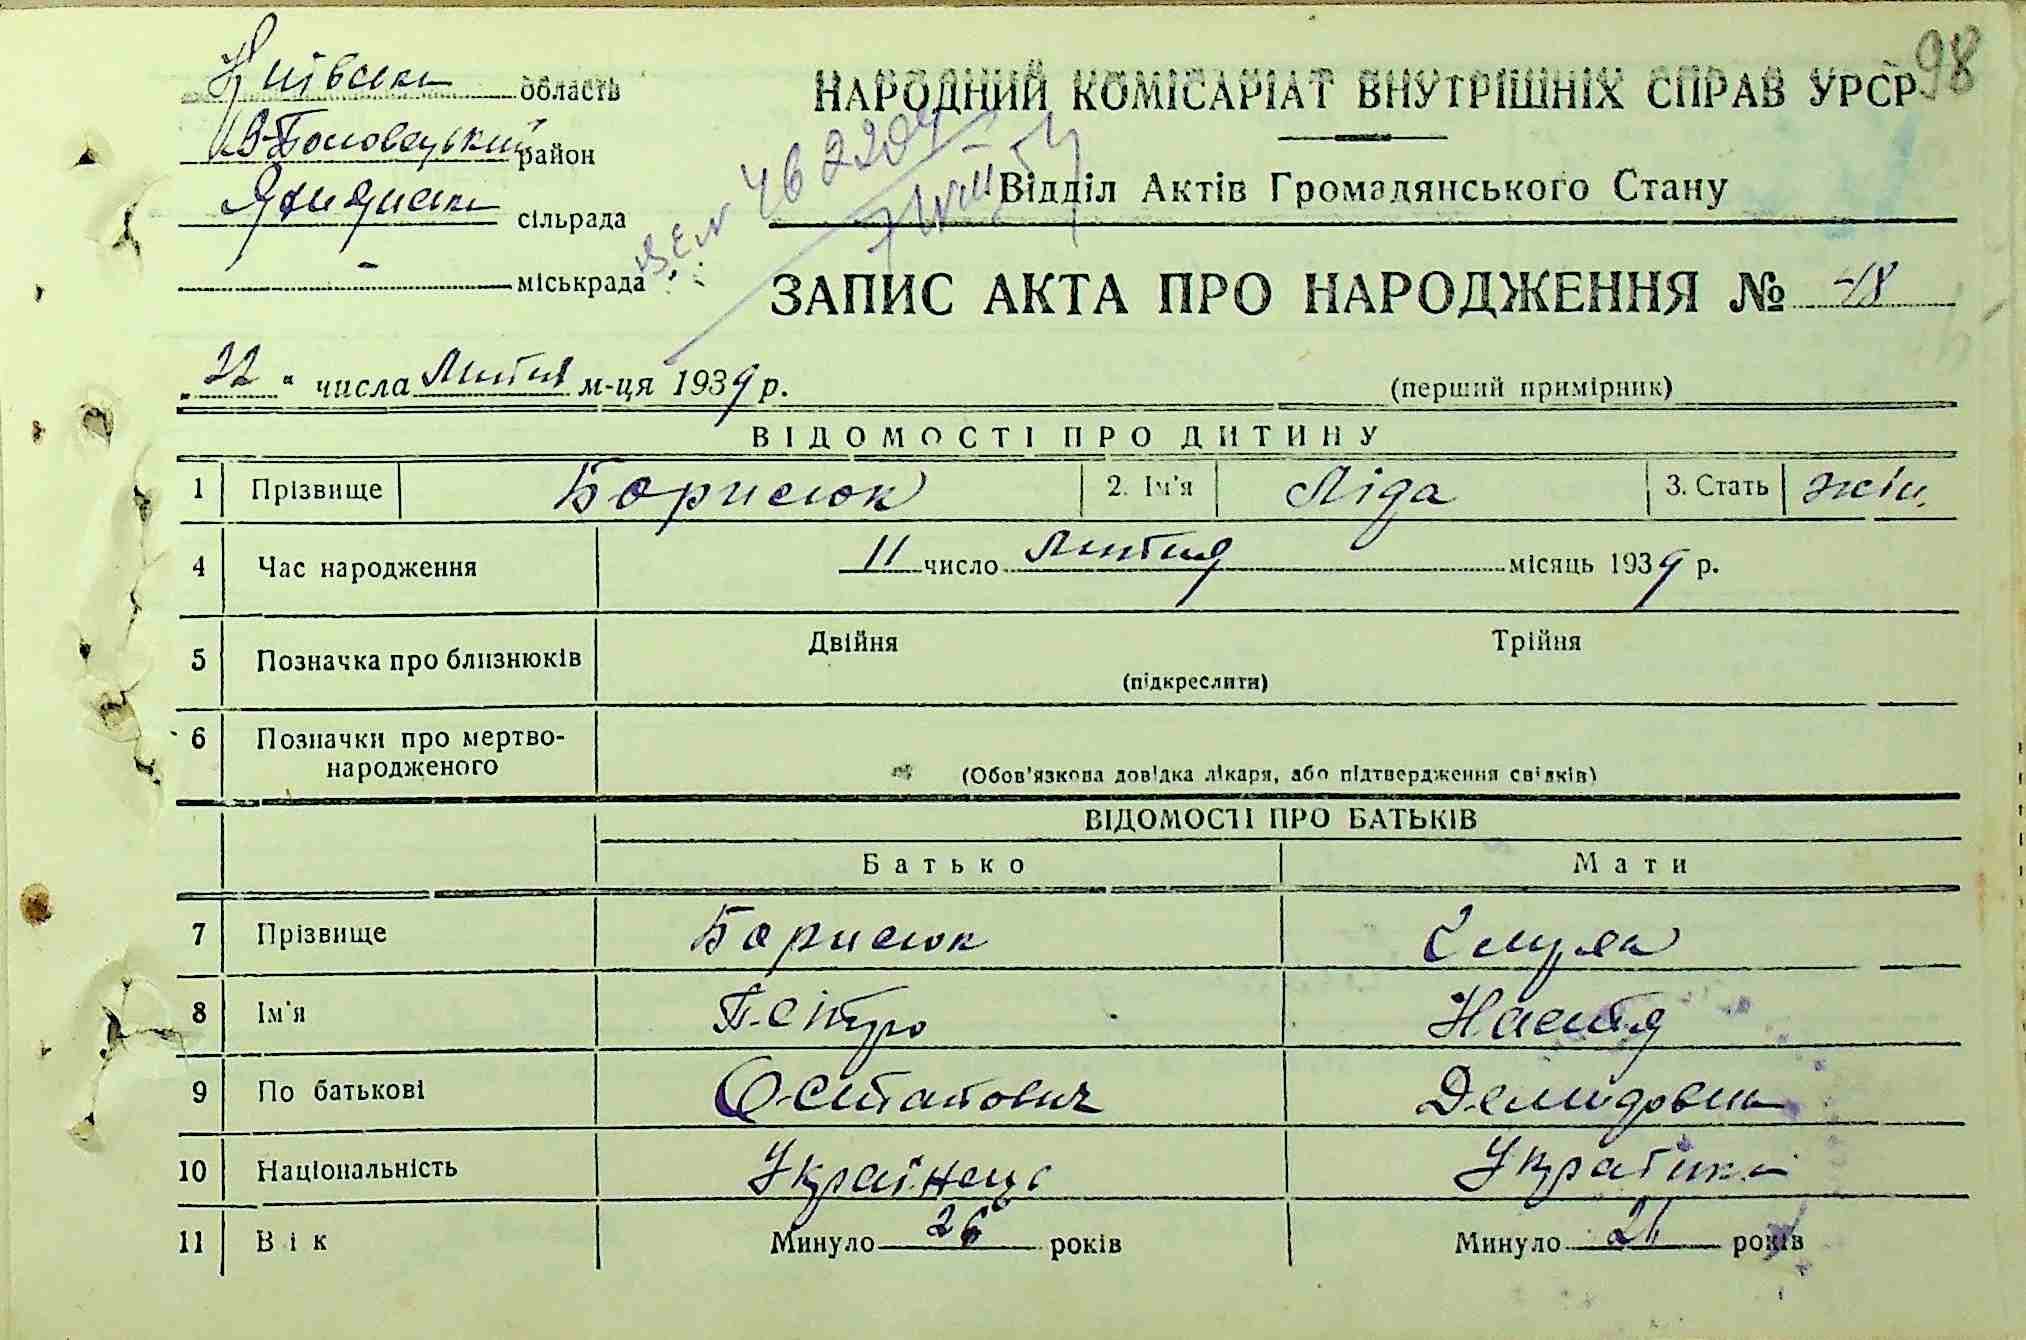 98
Київська область
В-Половецький район
сільрада
міськрада
НАРОДНИЙ КОМІСАРІАТ ВНУТРІШНІХ СПРАВ УРСР
Відділ Актів Громадянського Стану
ЗАПИС АКТА ПРО НАРОДЖЕННЯ № 48
„22“ числа Липня м-ця 1939 р.
(перший примірник)
ВІДОМОСТІ ПРО ДИТИНУ
1 Прізвище Борисюк 2. Ім'я Ліда 3. Стать жін.
4 Час народження 11 число Липня місяць 1939 р.
5 Позначка про близнюків Двійня Трійня
(підкреслити)
6 Позначки про мертво-
народженого
(Обов'язкова довідка лікаря, або підтвердження свідків)
ВІДОМОСТІ ПРО БАТЬКІВ
Батько Мати
7 Прізвище Борисюк
8 Ім'я Петро Настя
9 По батькові Остапович Демидовна
10 Національність Українець Українка
11 Вік Минуло 26 років Минуло років